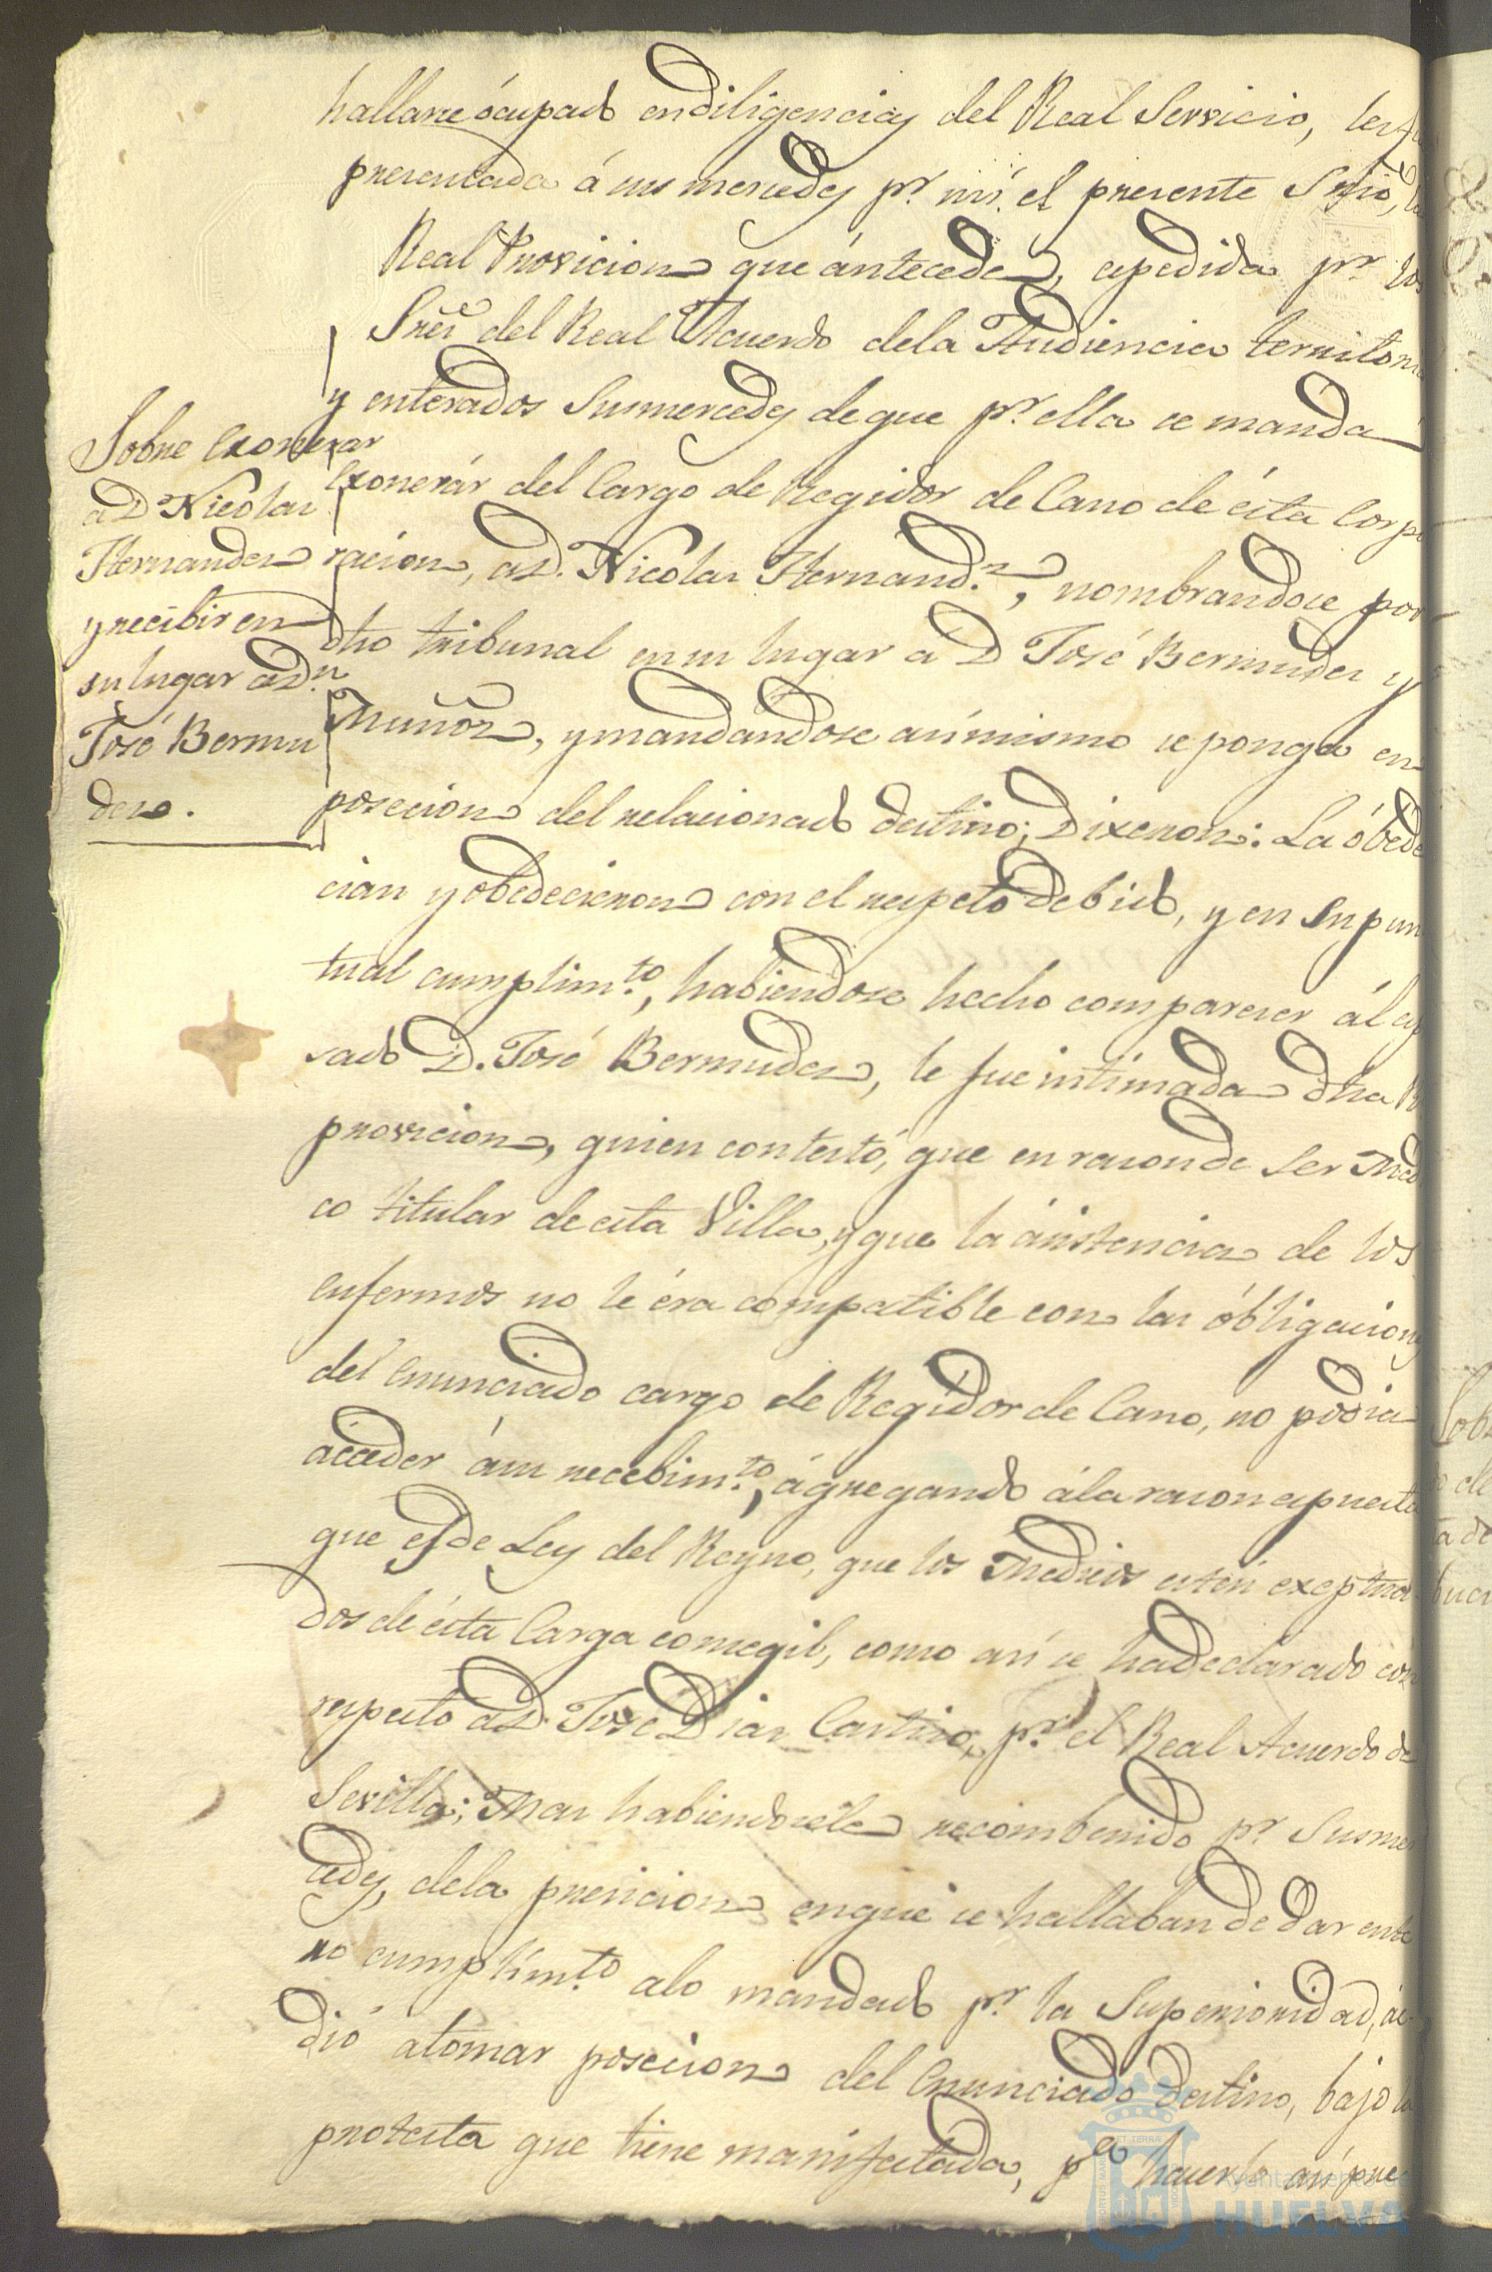 hallarse ócupado en diligencias del Real Servicio, les fu
presentada á sus mercedes pr. mí el presente Srño, la
Real Provicion que ántecede, espedida pr. los
Sres. del Real Acuerdo dela Audiencia territoria
y enterados Susmercedes de que pr. ella se manda
Exonerár del Cargo de Regidor de Cano de ésta Corpo
racion, a D. Nicolas Hernandz., nombrandose por
dho tribunal en su lugar a D José Bermudez y
Muñóz, y mandándose asímismo se ponga en
posecion del relacionado destino; Dixeron: La óbede
cian y obedecieron con el respeto debido, y en su pun
tual cumplimto., habiendose hecho comparecer ál es
sado D. José Bermudez, le fue intimada dha R
provicion, quien contestó, que en razon de ser Medi
co titular de esta Villa, y que la ásistencia de los
enfermos no le éra compatible con las óbligaciones
del Enunciado cargo de Regidor de Cano, no podia
acceder á su recebimto., ágregando á la razon espuesta
que es de Ley del Reyno, que los Medicos estén exeptua
dos de ésta Carga consegil, como así se ha declarado con
respecto a D. José Diaz Castizo, pr. el Real Acuerdo de
Sevilla; Mas habiendosele recombenido pr. Susmer
cedes, dela presicion en que se hallaban de dar ente
ro cumplimto. a lo mandado pr. la Superioridad, ac
dió a tomar posecion del Enunciado destino, bajo la
protesta que tiene manifestada, pa. hacerlo así pre
Sobre Exonerar
a D Nicolas
Hernandez
y recibir en
su lugar a Dn
José Bermu
dez.
Ayuntamiento de
HUELVA